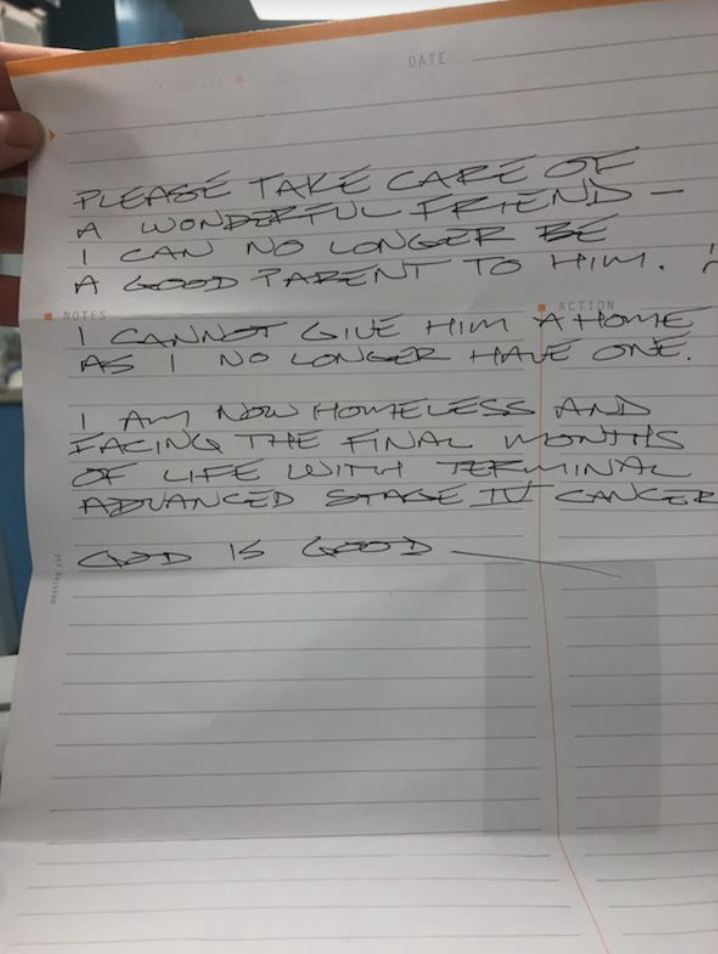 DATE
PLEASE TAKE CARE OF
A WONDERFUL FRIEND —
I CAN NO LONGER BE
A GOOD PARENT TO HIM.
NOTES
ACTION
I CANNOT GIVE HIM A HOME
AS I NO LONGER HAVE ONE.
I AM NOW HOMELESS AND
FACING THE FINAL MONTHS
OF LIFE WITH TERMINAL
ADVANCED STAGE IV CANCER
GOD IS GOOD —